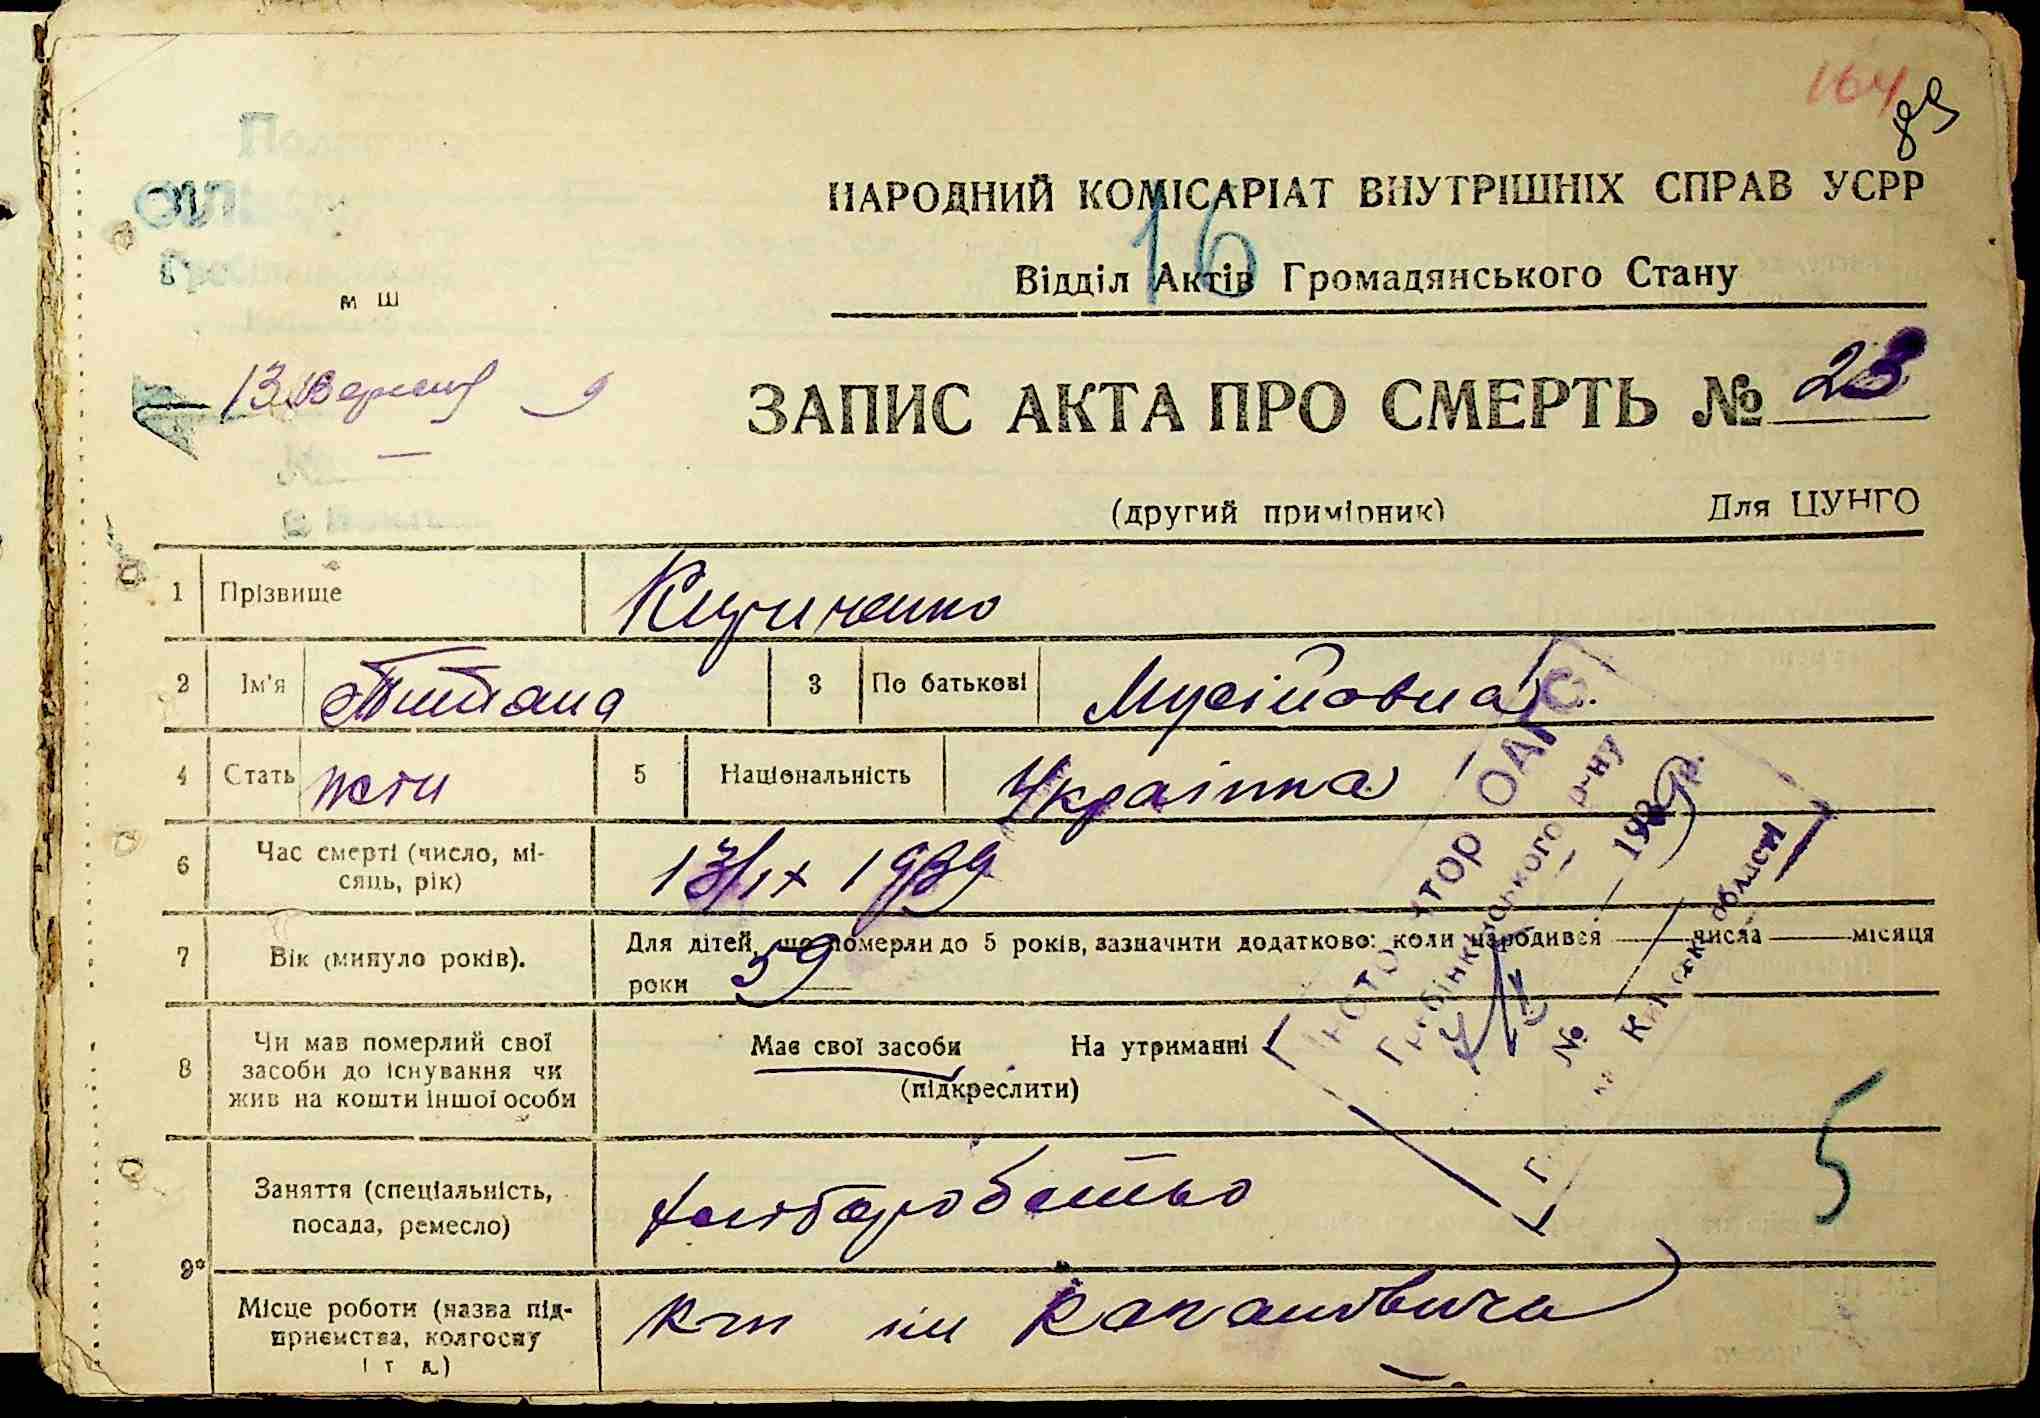 164
89
НАРОДНИЙ КОМІСАРІАТ ВНУТРІШНІХ СПРАВ УСРР
16
Відділ Актів Громадянського Стану
м Ш
13 Вересня 9
ЗАПИС АКТА ПРО СМЕРТЬ № 23
(другий примірник) Для ЦУНГО
1 Прізвище
2 Ім'я Титяна 3 По батькові Мусійовна
4 Стать жін 5 Національність Українка
6 Час смерті (число, мі-
сяць, рік) 13/ІХ 1939
7 Вік (минуло років). Для дітей, що померли до 5 років, зазначити додатково: коли народився числа місяця
роки 59
8 Чи мав померлий свої
засоби до існування чи
жив на кошти іншої особи
Має свої засоби На утриманні
(підкреслити)
Заняття (спеціальність,
посада, ремесло)
9*
Місце роботи (назва під-
приємства, колгоспу
і т д.)
Кгп ім Кагановича
5
Інструктор ОАГС
Гребінківського р-ну
№ 1939 р.
Київської області